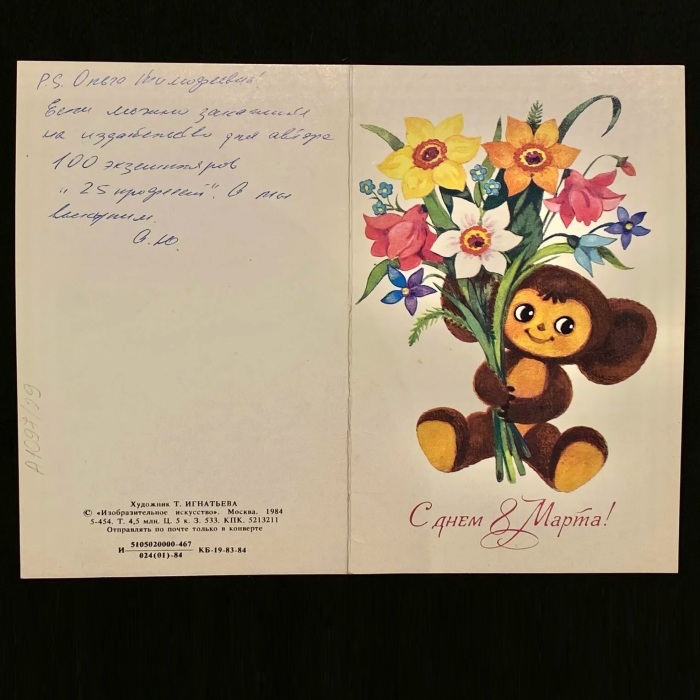 P.S. Ольга Тимофеевна!
Если можно закажите
на издательство для автора
100 экземпляров
"25 профессий". А мы
выкупим.
А.Ю.
А1097/29
Художник Т. ИГНАТЬЕВА
© «Изобразительное искусство». Москва. 1984
5-454. Т. 4,5 млн. Ц. 5 к. З. 533. КПК. 5213211
Отправлять по почте только в конверте
И 5105020000-467
024(01)-84 КБ-19-83-84
С днем 8 Марта!